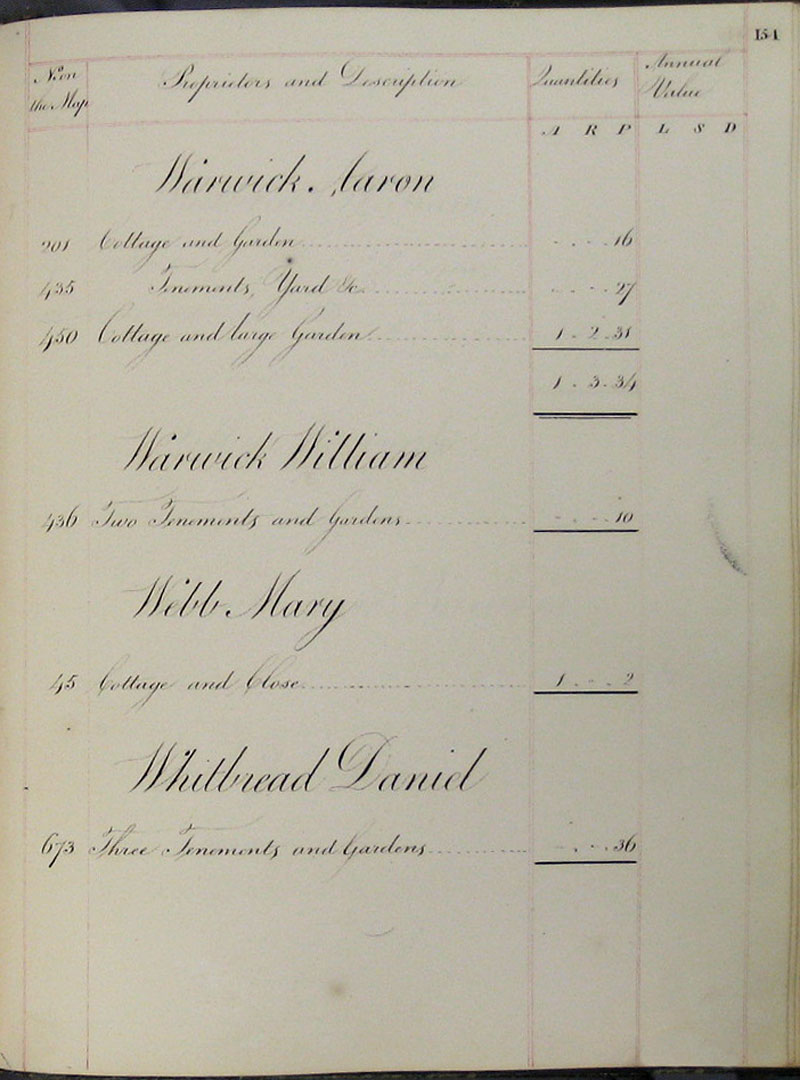 154
No. on the Map Proprietors and Description Quantities Annual Value
A R P L S D
Warwick Aaron
201 Cottage and Garden - - 16
435 Tenements, Yard &c - - 27
450 Cottage and large Garden 1 - 2 - 31
1 - 3 - 34
Warwick William
436 Two Tenements and Gardens - - 10
Webb Mary
45 Cottage and Close 1 - - 2
Whitbread Daniel
673 Three Tenements and Gardens - - 36